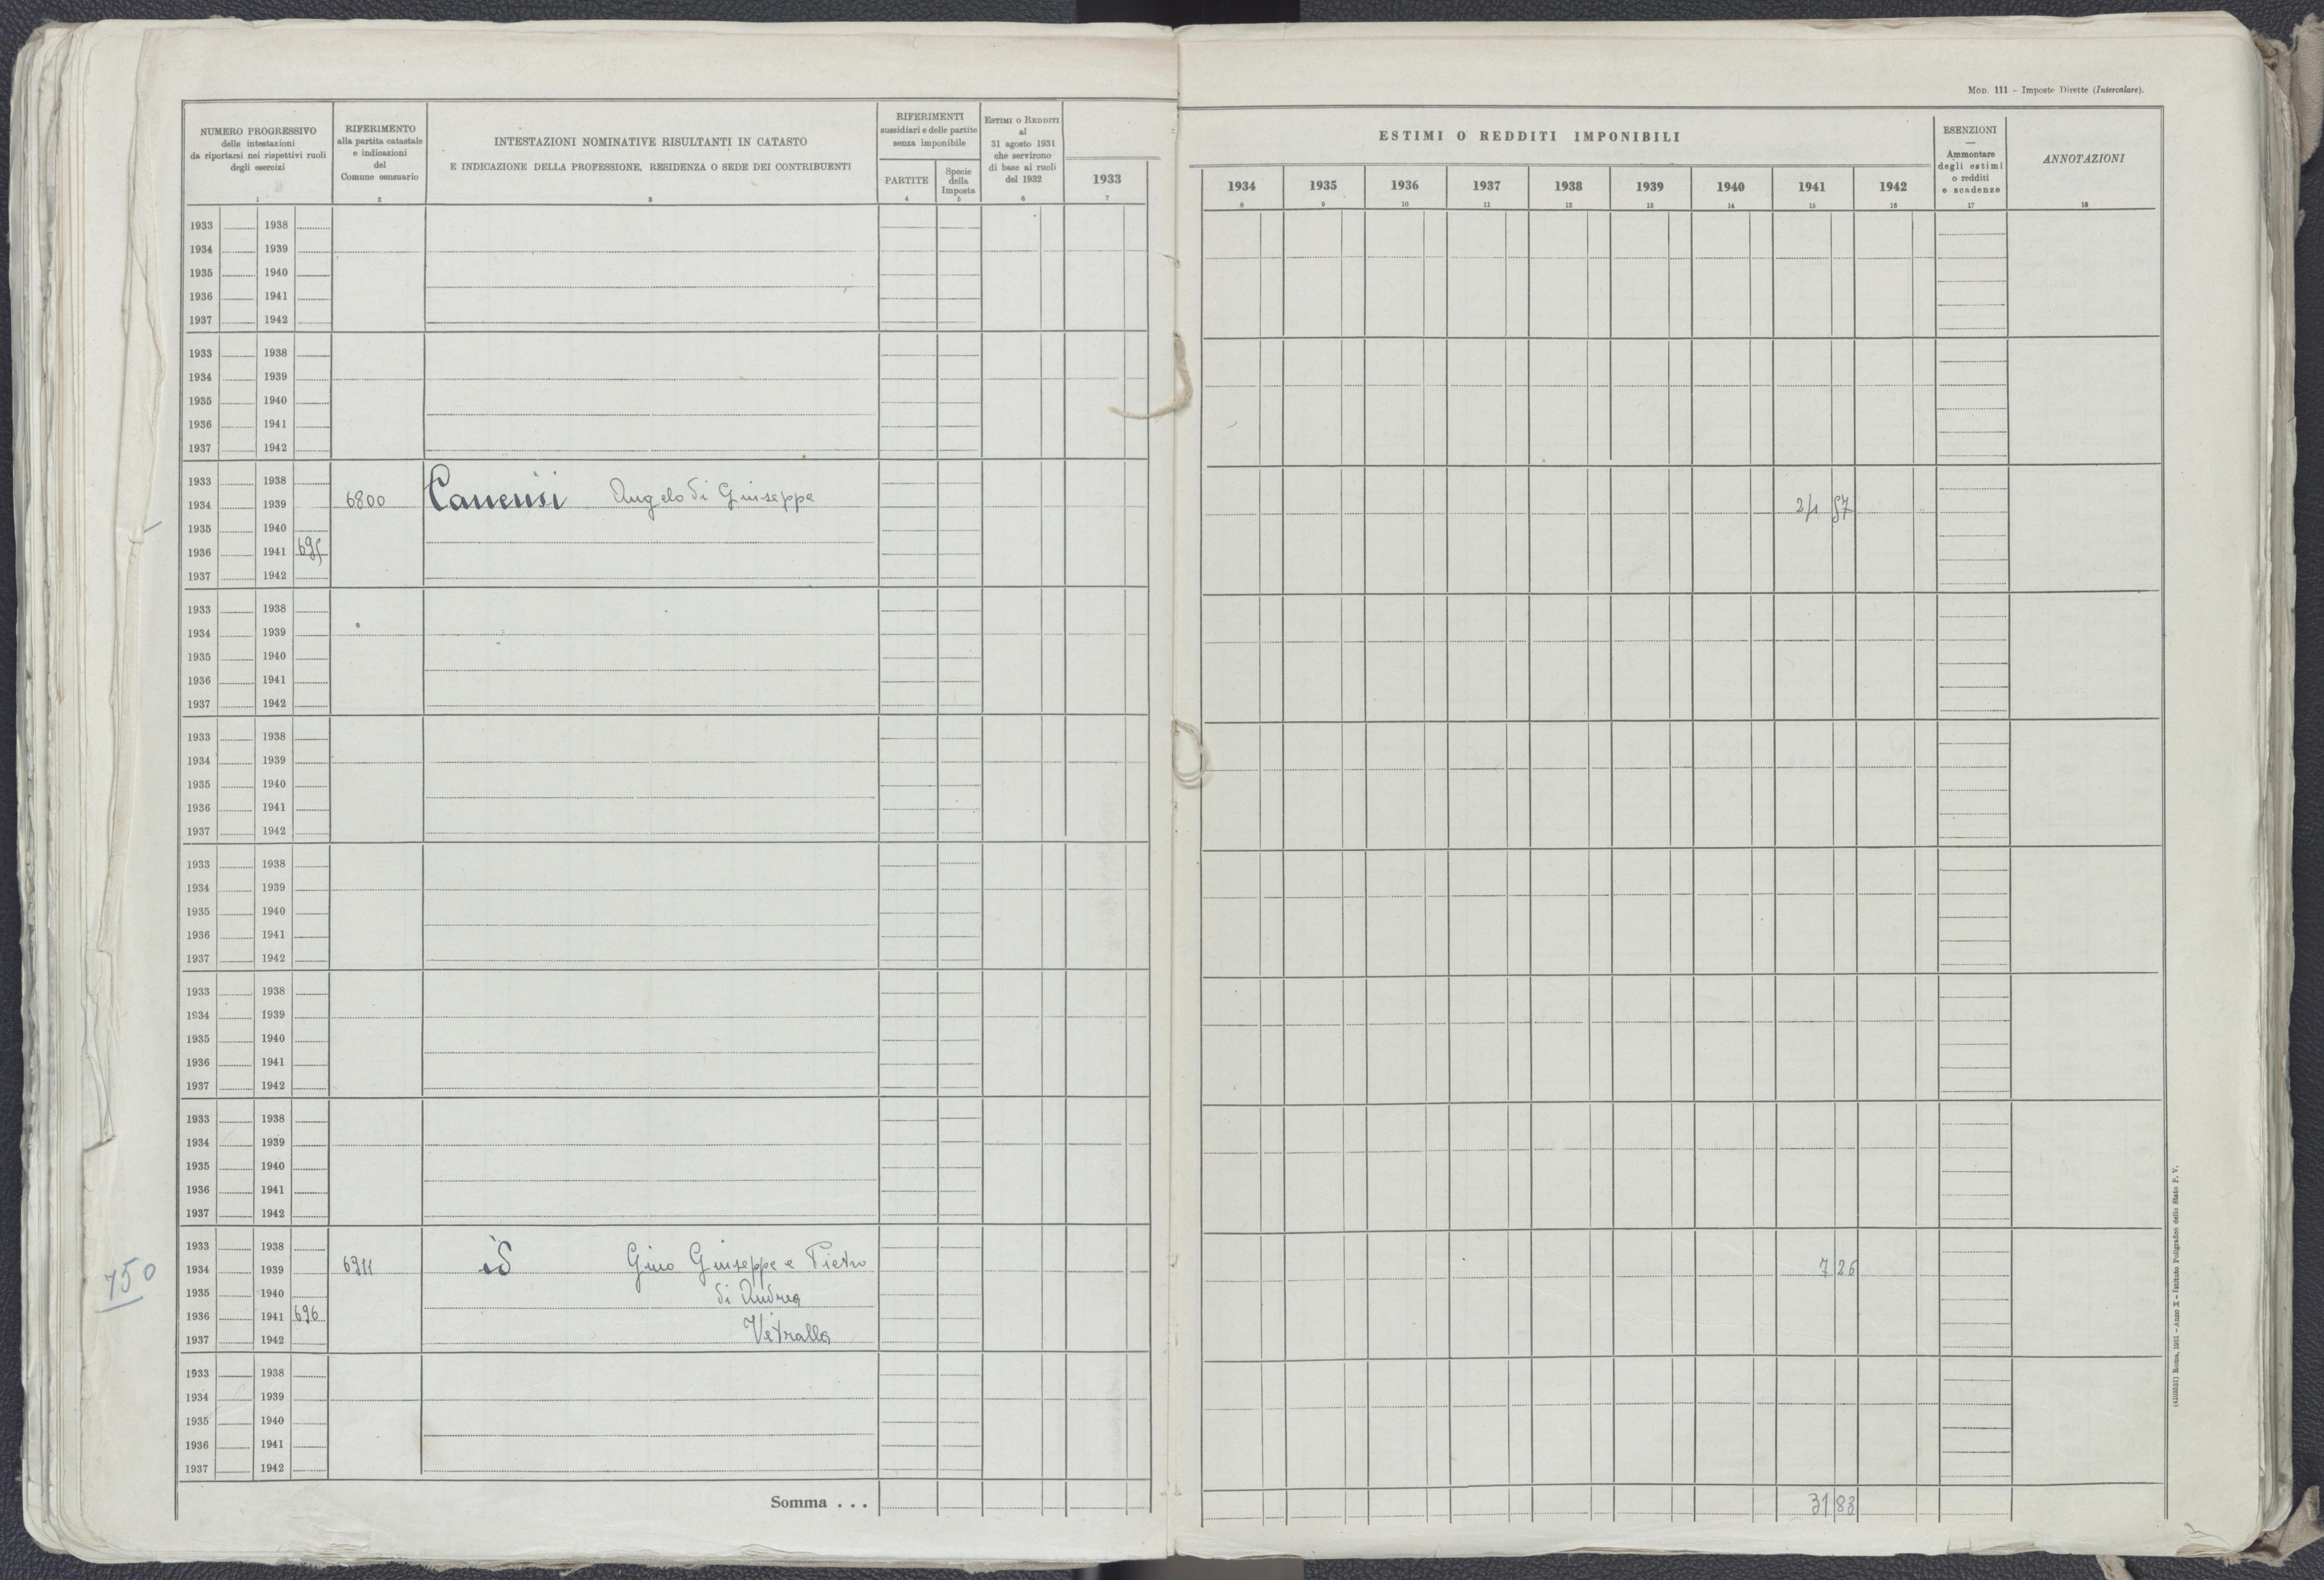 MOD. 111 - Imposte Dirette (Intercalare).
NUMERO PROGRESSIVO
delle intestazioni
da riportarsi nei rispettivi ruoli
degli esercizi
1
RIFERIMENTO
alla partita catastale
e indicazioni
del
Comune censuario
2
INTESTAZIONI NOMINATIVE RISULTANTI IN CATASTO
E INDICAZIONE DELLA PROFESSIONE, RESIDENZA O SEDE DEI CONTRIBUENTI
3
RIFERIMENTI
sussidiari e delle partite
senza imponibile
PARTITE
4
Specie
della
Imposta
5
ESTIMI O REDDITI
al
31 agosto 1931
che servirono
di base ai ruoli
del 1932
6
1933
7
ESTIMI O REDDITI IMPONIBILI
1934 1935 1936 1937 1938 1939 1940 1941 1942
8 9 10 11 12 13 14 15 16
ESENZIONI
—
Ammontare
degli estimi
o redditi
e scadenze
17
ANNOTAZIONI
18
1933 1938
1934 1939
1935 1940
1936 1941
1937 1942
1933 1938
1934 1939
1935 1940
1936 1941
1937 1942
1933 1938
1934 1939 6800 Canensi Angelo di Giuseppe 24 57
1935 1940
1936 1941 695
1937 1942
1933 1938
1934 1939
1935 1940
1936 1941
1937 1942
1933 1938
1934 1939
1935 1940
1936 1941
1937 1942
1933 1938
1934 1939
1935 1940
1936 1941
1937 1942
1933 1938
1934 1939
1935 1940
1936 1941
1937 1942
1933 1938
1934 1939
1935 1940
1936 1941
1937 1942
1933 1938
750
1934 1939 6911 id Gino Giuseppe e Pietro 7 26
1935 1940 di Andrea
1936 1941 696
1937 1942 Vetralla
1933 1938
1934 1939
1935 1940
1936 1941
1937 1942
Somma . . . 31 83
(4103531) Roma, 1931 - Anno X - Istituto Poligrafico dello Stato P. V.